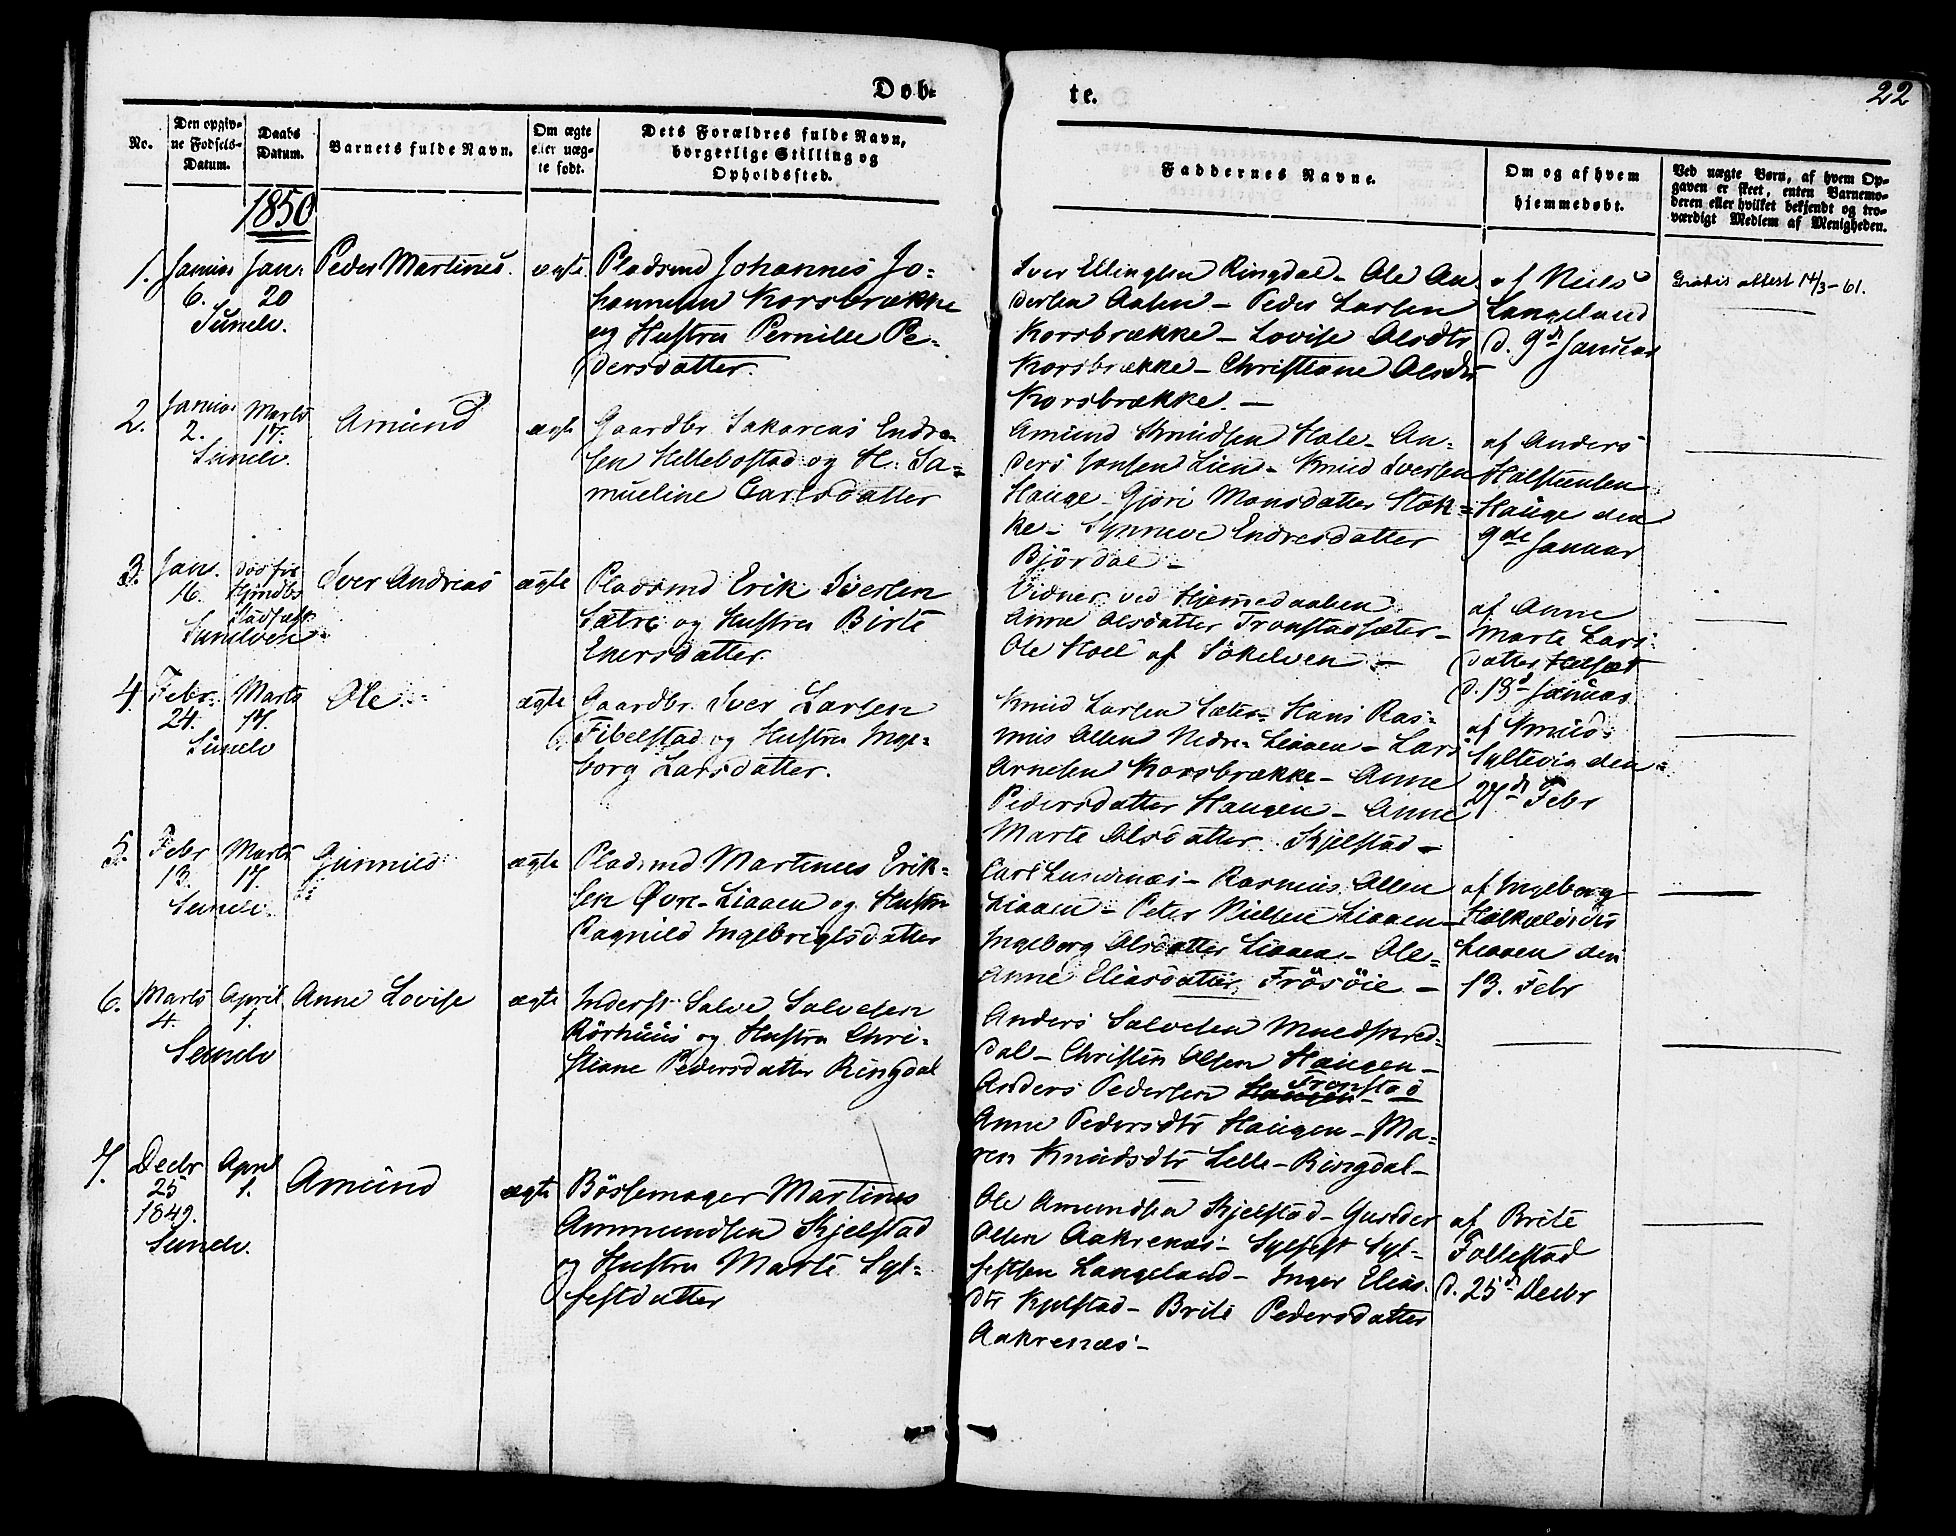 Dob-
te.
22
No.
Den opgiv-
ne Fødsels-
Datum.
Daabs
Datum.
Barnets fulde Navn.
Om ægte
eller uæg-
te født.
Dets Forældres fulde Navn,
borgerlige Stilling og
Opholdssted.
Faddernes Navne.
Om og af hvem
hjemmedøbt.
Ved uægte Børn, af hvem Op-
gaven er skeet, enten Barnemo-
deren eller hvilket bekjendt og tro-
værdigt Medlem af Menigheden.
1850
1.
Januar
6.
Sunelv.
Jan:
20
Peder Martinus.
ægte
Pladsmd Johannes Jo-
hannesen Korsbrække
og Hustru Pernille Pe-
dersdatter
Iver Ellingsen Ringdal - Ole An-
dersen Aasen - Peder Larsen
Korsbrække - Lovise Olsdtr
Korsbrække - Christiane Olsdtr
Korsbrække. -
af Niels
Langeland
d. 9d Januar
Gratis attest 14/3 - 61.
2.
Januar
2.
Sunelv.
Marts
17.
Amund
ægte
Gaardbr. Sakarias Endre-
sen Hellebostad og H. Sa-
mueline Carlsdatter
Amund Knudsen Hole - An-
ders Jonsen Lien - Knud Iversen
Hauge - Gjøri Monsdatter Stok-
ke - Synneve Endresdatter
Bjørdal -
af Anders
Halsteensen
Hauge den
9de Januar
3.
Jan.
16.
Sunelven
død før
Stadfæst.
Iver Andreas
ægte
Pladsmd Erik Iversen
Sætre og Hustru Birte
Enersdatter.
Vidner ved Hjemmedaaben
Anne Olsdatter Tronstadsæter -
Ole Hoel af Søkelven -
af Anne
Marte Lars-
datter
d. 19d Januar
4.
Febr.
24.
Sunelv
Marts
17.
Ole
ægte
Gaardbr. Iver Larsen
Fibelstad og Hustru Inge-
borg Larsdatter.
Knud Larsen Sæter - Hans Ras-
mus Olsen Nedre-Liaaen - Lars
Arnesen Korsbrække - Anne
Pedersdatter Haugen - Anne
Marte Olsdatter Kjelstad -
af Knud
Syltevig den
27d Febr
5.
Febr
13.
Sunelv.
Marts
17.
Gunnild
ægte
Pladsmd Martinus Erik-
sen Øvre-Liaaen og Hustru
Ragnild Ingebregtsdatter
Carl Lundenæs - Rasmus Olsen
Liaaen - Peter Nielsen Liaaen -
Ingeborg Olsdatter Liaaen - Ole-
Anne Eliasdatter Frøsøie -
af Ingeborg
Liaaen den
13. Febr
6.
Marts
4.
Sunelv
April
1.
Anne Lovise
ægte
Inderst Salve Salvesen
Rørhuus og Hustru Chri-
stiane Pedersdatter Ringdal
Anders Salvesen Muldskred-
dal - Christen Olsen Haugen -
Anders Pedersen Haugen Tronstad
Anne Pedersdtr Haugen - Ma-
ren Knudsdtr Lille-Ringdal -
7.
Decbr
25
1849.
Sunelv.
April
1.
Amund
ægte
Bössemager Martinus
Ammundsen Kjelstad
og Hustru Marte Syl-
festdatter
Ole Amundsen Kjelstad - Gunder
Olsen Aakrenæs - Sylfest Syl-
festsen Langeland - Inger Elias-
dtr Kjelstad - Brite Pedersdatter
Aakrenæs -
af Brite
Follestad
d. 25d Decbr